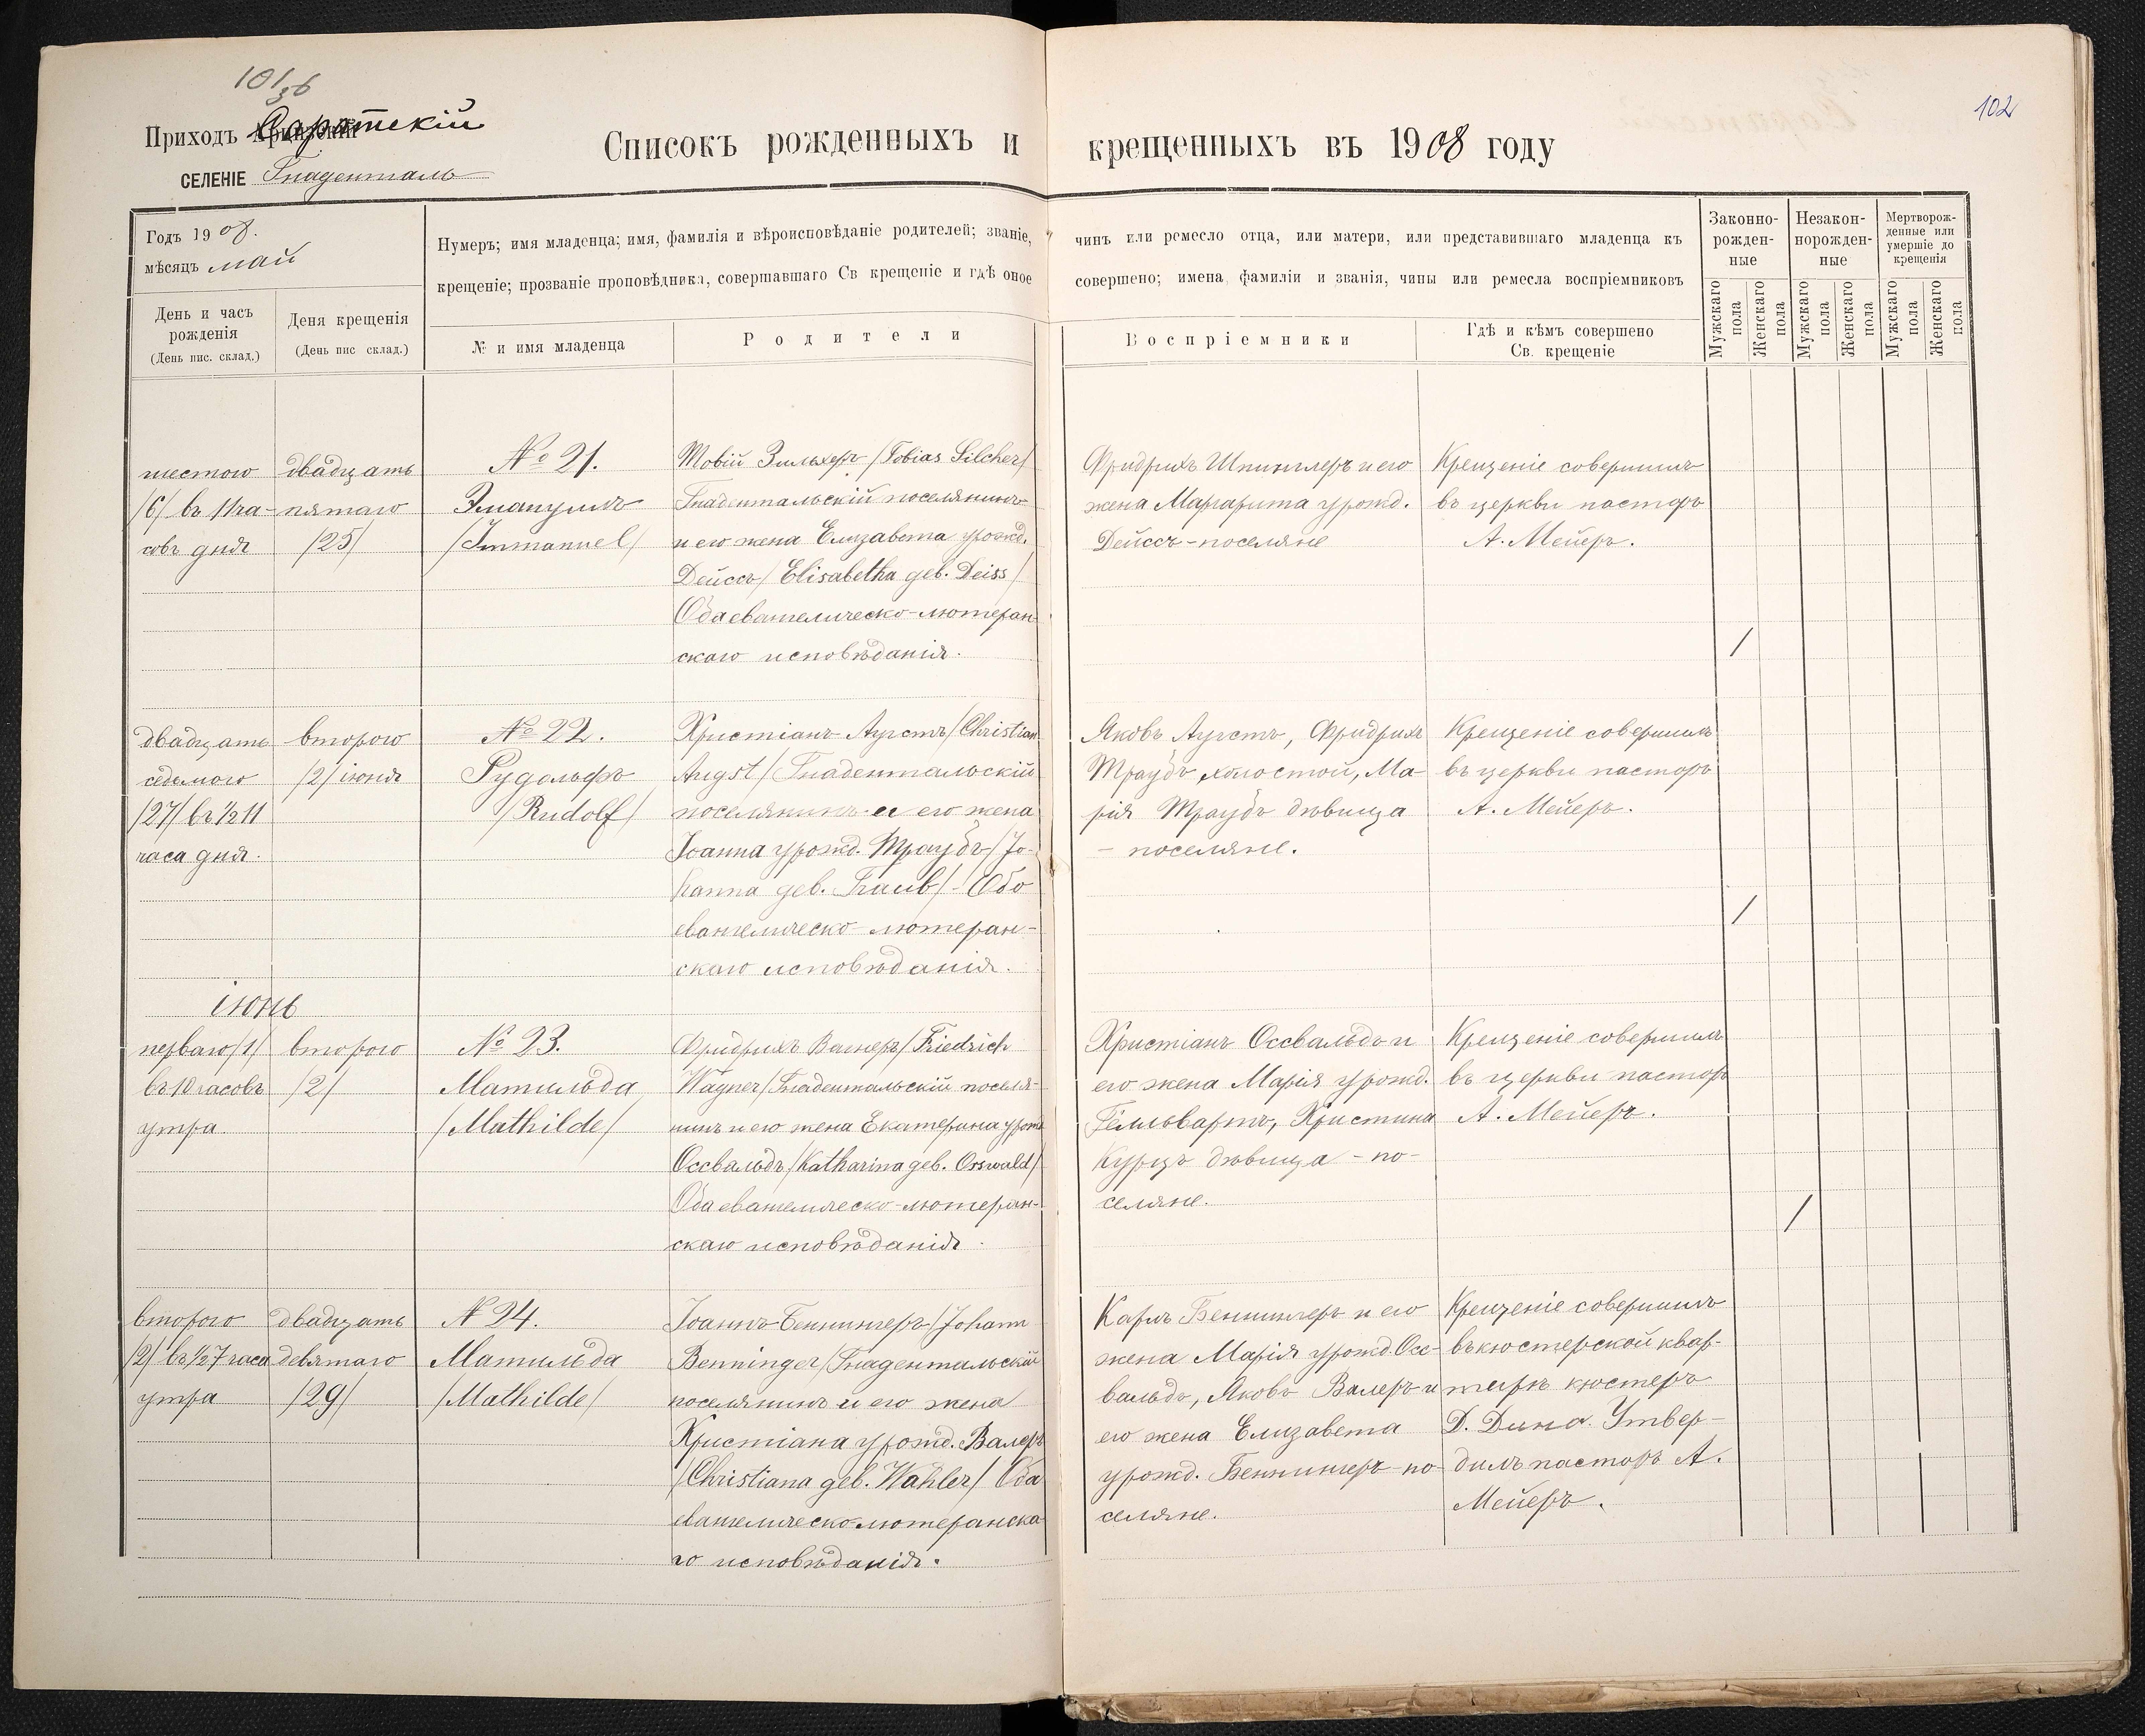 101/36
102
Приходъ Саратскій
СЕЛЕНІЕ Гнаденталь
Списокъ рожденныхъ и крещенныхъ въ 1908 году
Годъ 1908.
мѣсяцъ май
Нумеръ; имя младенца; имя, фамилія и вѣроисповѣданіе родителей; званіе, чинъ или ремесло отца, или матери, или представившаго младенца къ
крещеніе; прозваніе проповѣдника, совершавшаго Св крещеніе и гдѣ оное совершено; имена, фамиліи и званія, чины или ремесла воспріемниковъ
День и часъ
рожденія
(День пис. склад.)
Деня крещенія
(День пис склад.)
№ и имя младенца
Родители
Воспріемники
Гдѣ и кѣмъ совершено
Св. крещеніе
Законно-
рожден-
ные
Незакон-
норожден-
ные
Мертворож-
денные или
умершіе до
крещенія
Мужскаго
пола
Женскаго
пола
Мужскаго
пола
Женскаго
пола
Мужскаго
пола
Женскаго
пола
шестого
/6/ въ 11 ча-
совъ дня
двадцать
пятаго
/25/
№ 21.
Эмануилъ
/Immanuel/
Товій Зильхеръ /Tobias Silcher/
Гнадентальскій поселянинъ
и его жена Елизавета урожд.
Дейссъ / Elisabetha geb. Deiss /
Оба евангелическо-лютеран-
скаго исповѣданія.
Фридрихъ Шпинглеръ и его
жена Маргарита урожд.
Дейссъ - поселяне
Крещеніе совершилъ
въ церкви пасторъ
А. Мейеръ.
/
двадцать
седьмого
/27/ въ ½ 11
часа дня.
второго
/2/ іюня
№ 22.
Рудольфъ
/Rudolf/
Христіанъ Аугстъ /Christian
Augst/ Гнадентальскій
поселянинъ и его жена
Іоанна урожд. Траубъ /Jo-
hanna geb. Traub/ - Обо
евангелическо-лютеран-
скаго исповѣданія.
Яковъ Аугстъ, Фридрихъ
Траубъ, холостой, Ма-
рія Траубъ дѣвица
- поселяне.
Крещеніе совершилъ
въ церкви пасторъ
А. Мейеръ.
/
іюнь
перваго /1/
въ 10 часовъ
утра
второго
/2/
№ 23.
Матильда
/Mathilde/
Фридрихъ Вагнеръ / Friedrich
Wagner / Гнадентальскій поселя-
нинъ и его жена Екатерина урожд.
Оссвальдъ /Katharina geb. Osswald/
Оба евангелическо-лютеран-
скаго исповѣданія.
Христіанъ Оссвальдъ и
его жена Марія урожд.
Гельвартъ, Христина
Курцъ дѣвица - по-
селяне.
Крещеніе совершилъ
въ церкви пасторъ
А. Мейеръ.
/
второго
/2/ въ ½ 7 часа
утра
двадцать
девятаго
/29/
№ 24.
Матильда
/Mathilde/
Іоаннъ Беннингеръ /Johann
Benninger/ Гнадентальскій
поселянинъ и его жена
Христіана урожд. Валеръ
/Christiana geb. Wahler/ Оба
евангелическо лютеранска-
го исповѣданія.
Карлъ Беннингеръ и его
жена Марія урожд. Осс-
вальдъ, Яковъ Валеръ и
его жена Елизавета
урожд. Беннингеръ - по-
селяне.
Крещеніе совершилъ
въ кюстерской квар-
тирѣ кюстеръ
Д. Утвер-
дилъ пасторъ А.
Мейеръ.